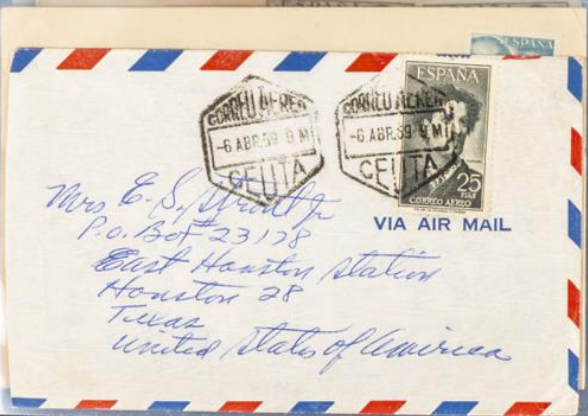 ESPAÑA
CORREO AEREO
-6 ABR.59 9 M
CEUTA
CORREO AEREO
-6 ABR.59 9 M
CEUTA
ESPAÑA
25
PTAS
CORREO AEREO
VIA AIR MAIL
Mrs E. S. Jr
P.O. Box # 23178
East Houston Station
Houston 28
Texas
United States of America